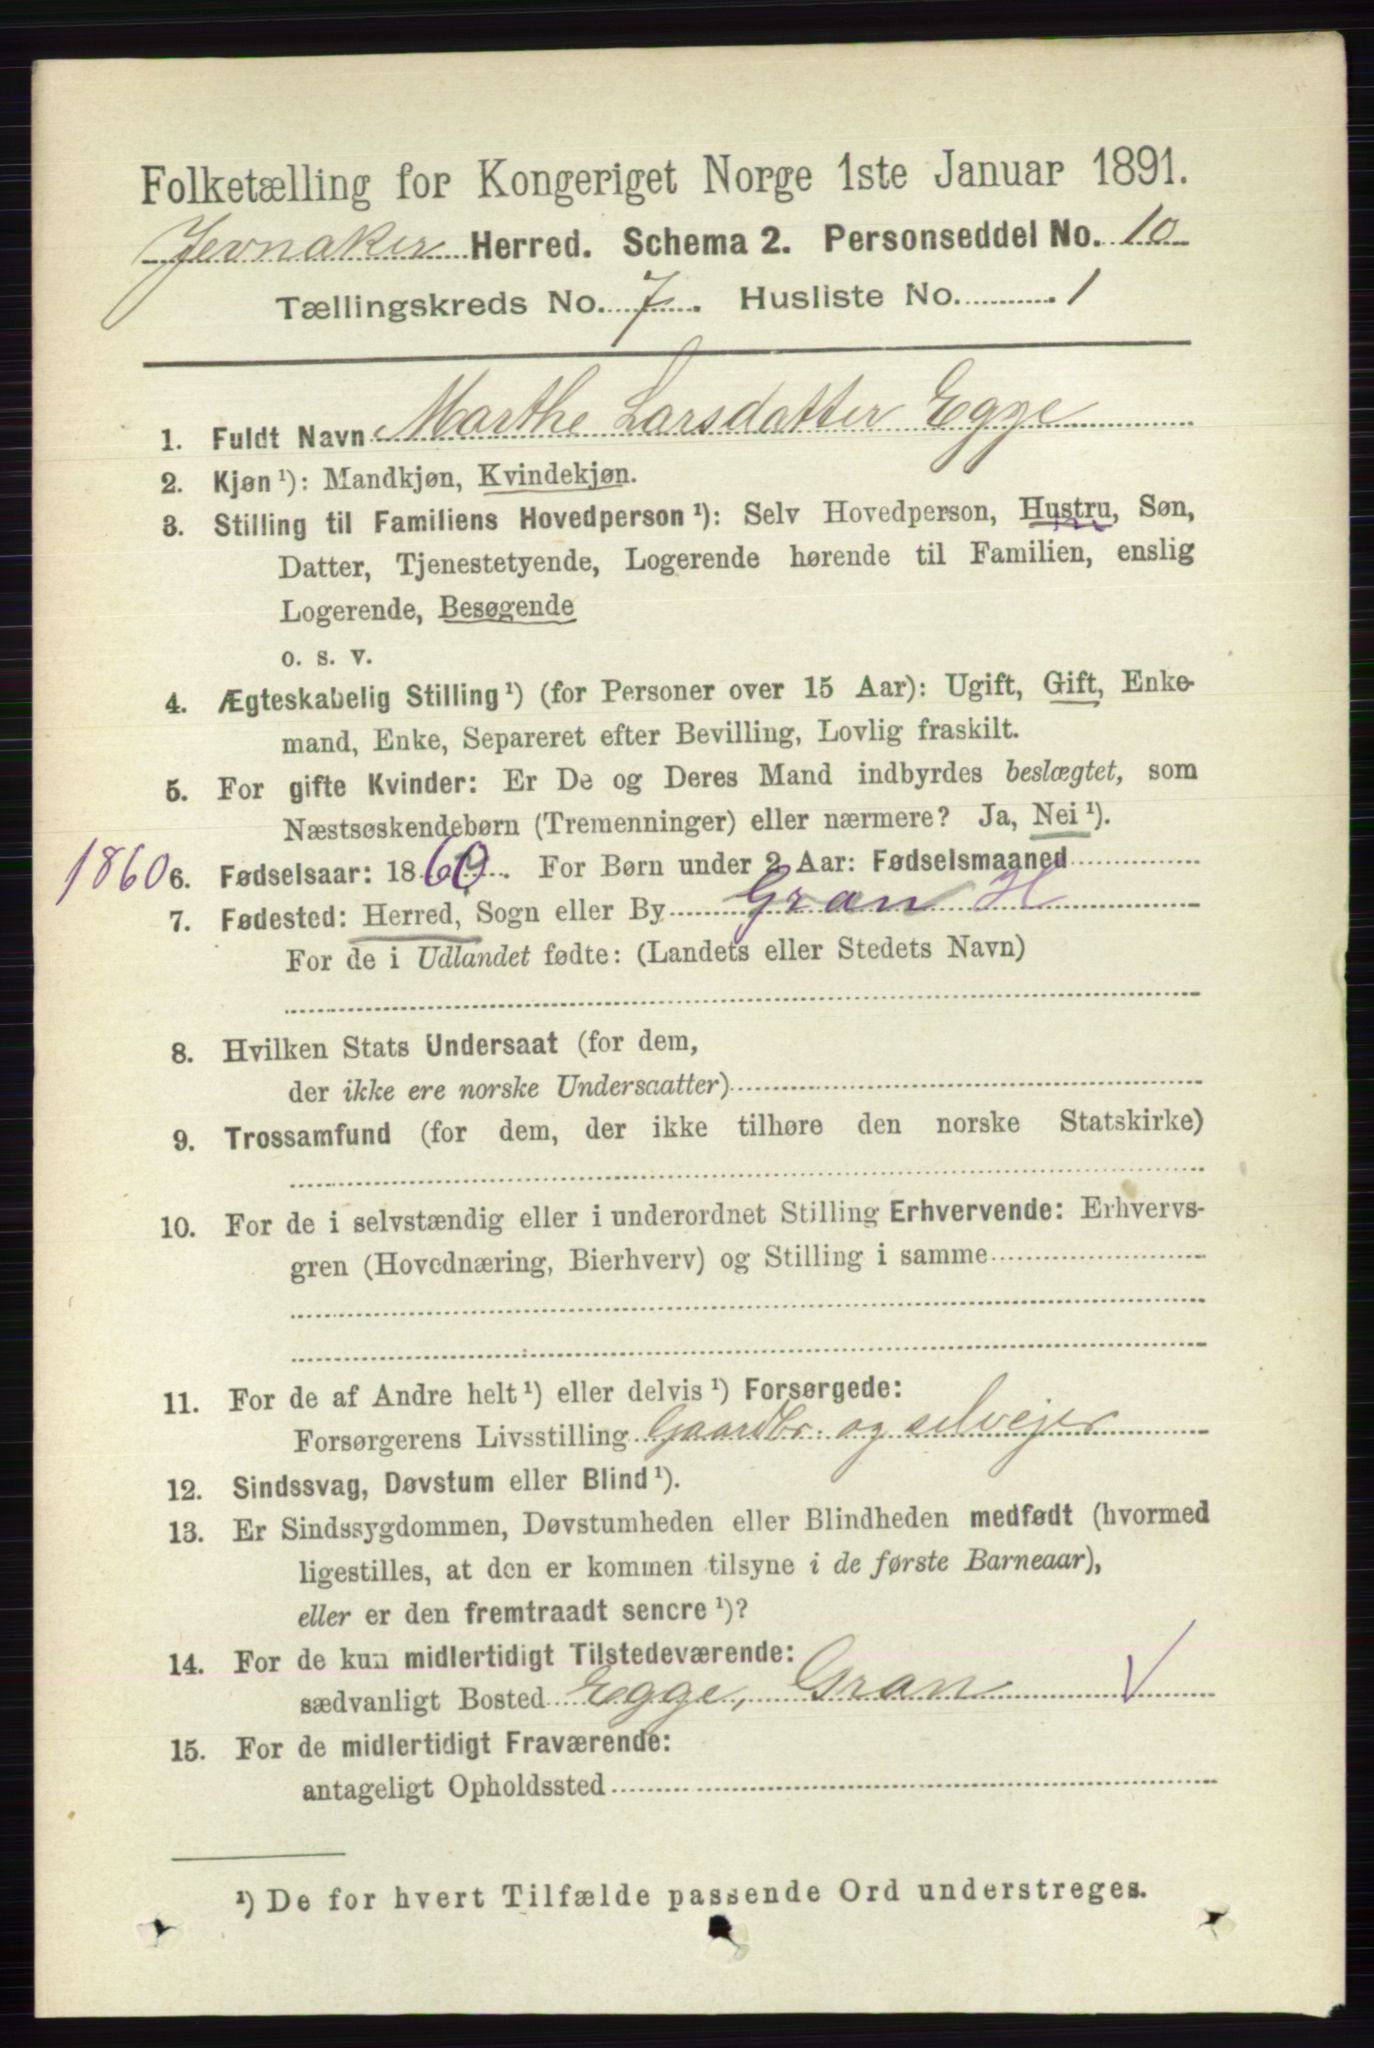 Folketælling for Kongeriget Norge 1ste Januar 1891.
Jevnaker Herred. Schema 2. Personseddel No. 10
Tællingskreds No. 7. Husliste No. 1
1. Fuldt Navn Marthe Larsdatter Egge
2. Kjøn ¹): Mandkjøn, Kvindekjøn.
3. Stilling til Familiens Hovedperson ¹): Selv Hovedperson, Hustru, Søn,
Datter, Tjenestetyende, Logerende hørende til Familien, enslig
Logerende, Besøgende
o. s. v.
4. Ægteskabelig Stilling ¹) (for Personer over 15 Aar): Ugift, Gift, Enke-
mand, Enke, Separeret efter Bevilling, Lovlig fraskilt.
5. For gifte Kvinder: Er De og Deres Mand indbyrdes beslægtet, som
Næstsøskendebørn (Tremenninger) eller nærmere? Ja, Nei ¹).
1860 6. Fødselsaar: 1860. For Børn under 2 Aar: Fødselsmaaned
7. Fødested: Herred, Sogn eller By Gran H
For de i Udlandet fødte: (Landets eller Stedets Navn)
8. Hvilken Stats Undersaat (for dem,
der ikke ere norske Undersaatter)
9. Trossamfund (for dem, der ikke tilhøre den norske Statskirke)
10. For de i selvstændig eller i underordnet Stilling Erhvervende: Erhvervs-
gren (Hovednæring, Bierhverv) og Stilling i samme
11. For de af Andre helt ¹) eller delvis ¹) Forsørgede:
Forsørgerens Livsstilling Gaardbr. og selvejer
12. Sindssvag, Døvstum eller Blind ¹).
13. Er Sindssygdommen, Døvstumheden eller Blindheden medfødt (hvormed
ligestilles, at den er kommen tilsyne i de første Barneaar),
eller er den fremtraadt senere ¹)?
14. For de kun midlertidigt Tilstedeværende:
sædvanligt Bosted Egge, Gran V
15. For de midlertidigt Fraværende:
antageligt Opholdssted
¹) De for hvert Tilfælde passende Ord understreges.